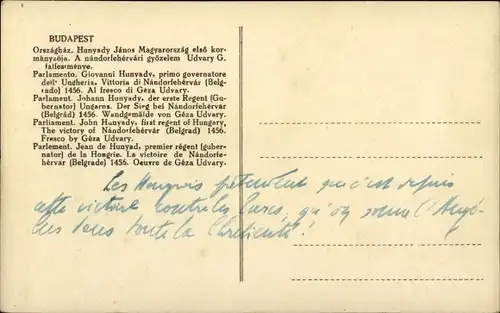 BUDAPEST
Országház. Hunyady János Magyarország első kor-
mányzója. A nándorfehérvári győzelem Udvary G.
falfestménye.
Parlamento. Giovanni Hunyady, primo governatore
dell' Ungheria. Vittoria di Nándorfehérvár (Belg-
rado) 1456. Al fresco di Géza Udvary.
Parlament. Johann Hunyady, der erste Regent (Gu-
bernator) Ungarns. Der Sieg bei Nándorfehérvár
(Belgrád) 1456. Wandgemälde von Géza Udvary.
Parliament. John Hunyady, first regent of Hungary,
The victory of Nándorfehérvár (Belgrad) 1456.
Fresco by Géza Udvary.
Parlement. Jean de Hunyad, premier régent (guber-
nator) de la Hongrie. La victoire de Nándorfe-
hérvár (Belgrade) 1456. Oeuvre de Géza Udvary.
Les Hongrois prétendent que c'est depuis
cette victoire contre les Turcs, qu'on sonne l'Angé-
lus dans toute la Chrétienté!